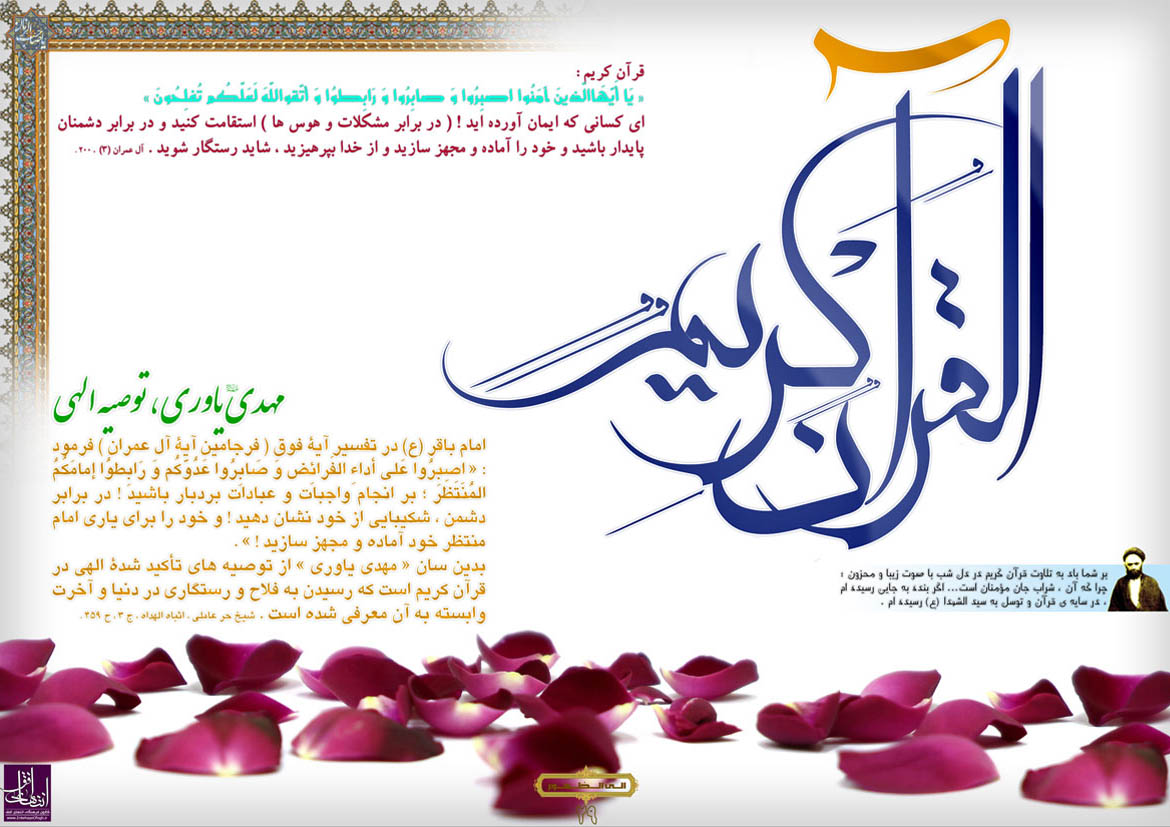 قرآن کریم :
« یَا أَیُّهَا الَّذِینَ آمَنُوا اصبِرُوا وَ صابِرُوا وَ رَابِطُوا وَ اتَّقُوا اللَّهَ لَعَلَّکُم تُفلِحُونَ »
ای کسانی که ایمان آورده اید ! ( در برابر مشکلات و هوس ها ) استقامت کنید و در برابر دشمنان
پایدار باشید و خود را آماده و مجهز سازید و از خدا بپرهیزید ، شاید رستگار شوید . آل عمران (۳) ، ۲۰۰ .
القرآن الکریم
مهدی یاوری ، توصیه الهی
امام باقر (ع) در تفسیر آیۀ فوق ( فرجامین آیۀ آل عمران ) فرمود
: « اصبِرُوا عَلی أداءِ الفَرائض وَ صَابِرُوا عَدُوَّکُم وَ رَابِطُوا إمامَکُمُ
المُنتَظَر ؛ بر انجام واجبات و عبادات بردبار باشید ! در برابر
دشمن ، شکیبایی از خود نشان دهید ! و خود را برای یاری امام
منتظر خود آماده و مجهز سازید ! » .
بدین سان « مهدی یاوری » از توصیه های تأکید شدۀ الهی در
قرآن کریم است که رسیدن به فلاح و رستگاری در دنیا و آخرت
وابسته به آن معرفی شده است . شیخ حر عاملی ، اثباه الهداه ، ج ۳ ، ح ۳۵۹ .
بر شما باد به تلاوت قرآن کریم در دل شب با صوت زیبا و محزون ؛
چرا که آن ، شراب جان مؤمنان است... اگر بنده به جایی رسیده ام
، در سایه ی قرآن و توسل به سید الشهدا (ع) رسیده ام .
الی الظهور
۲۹